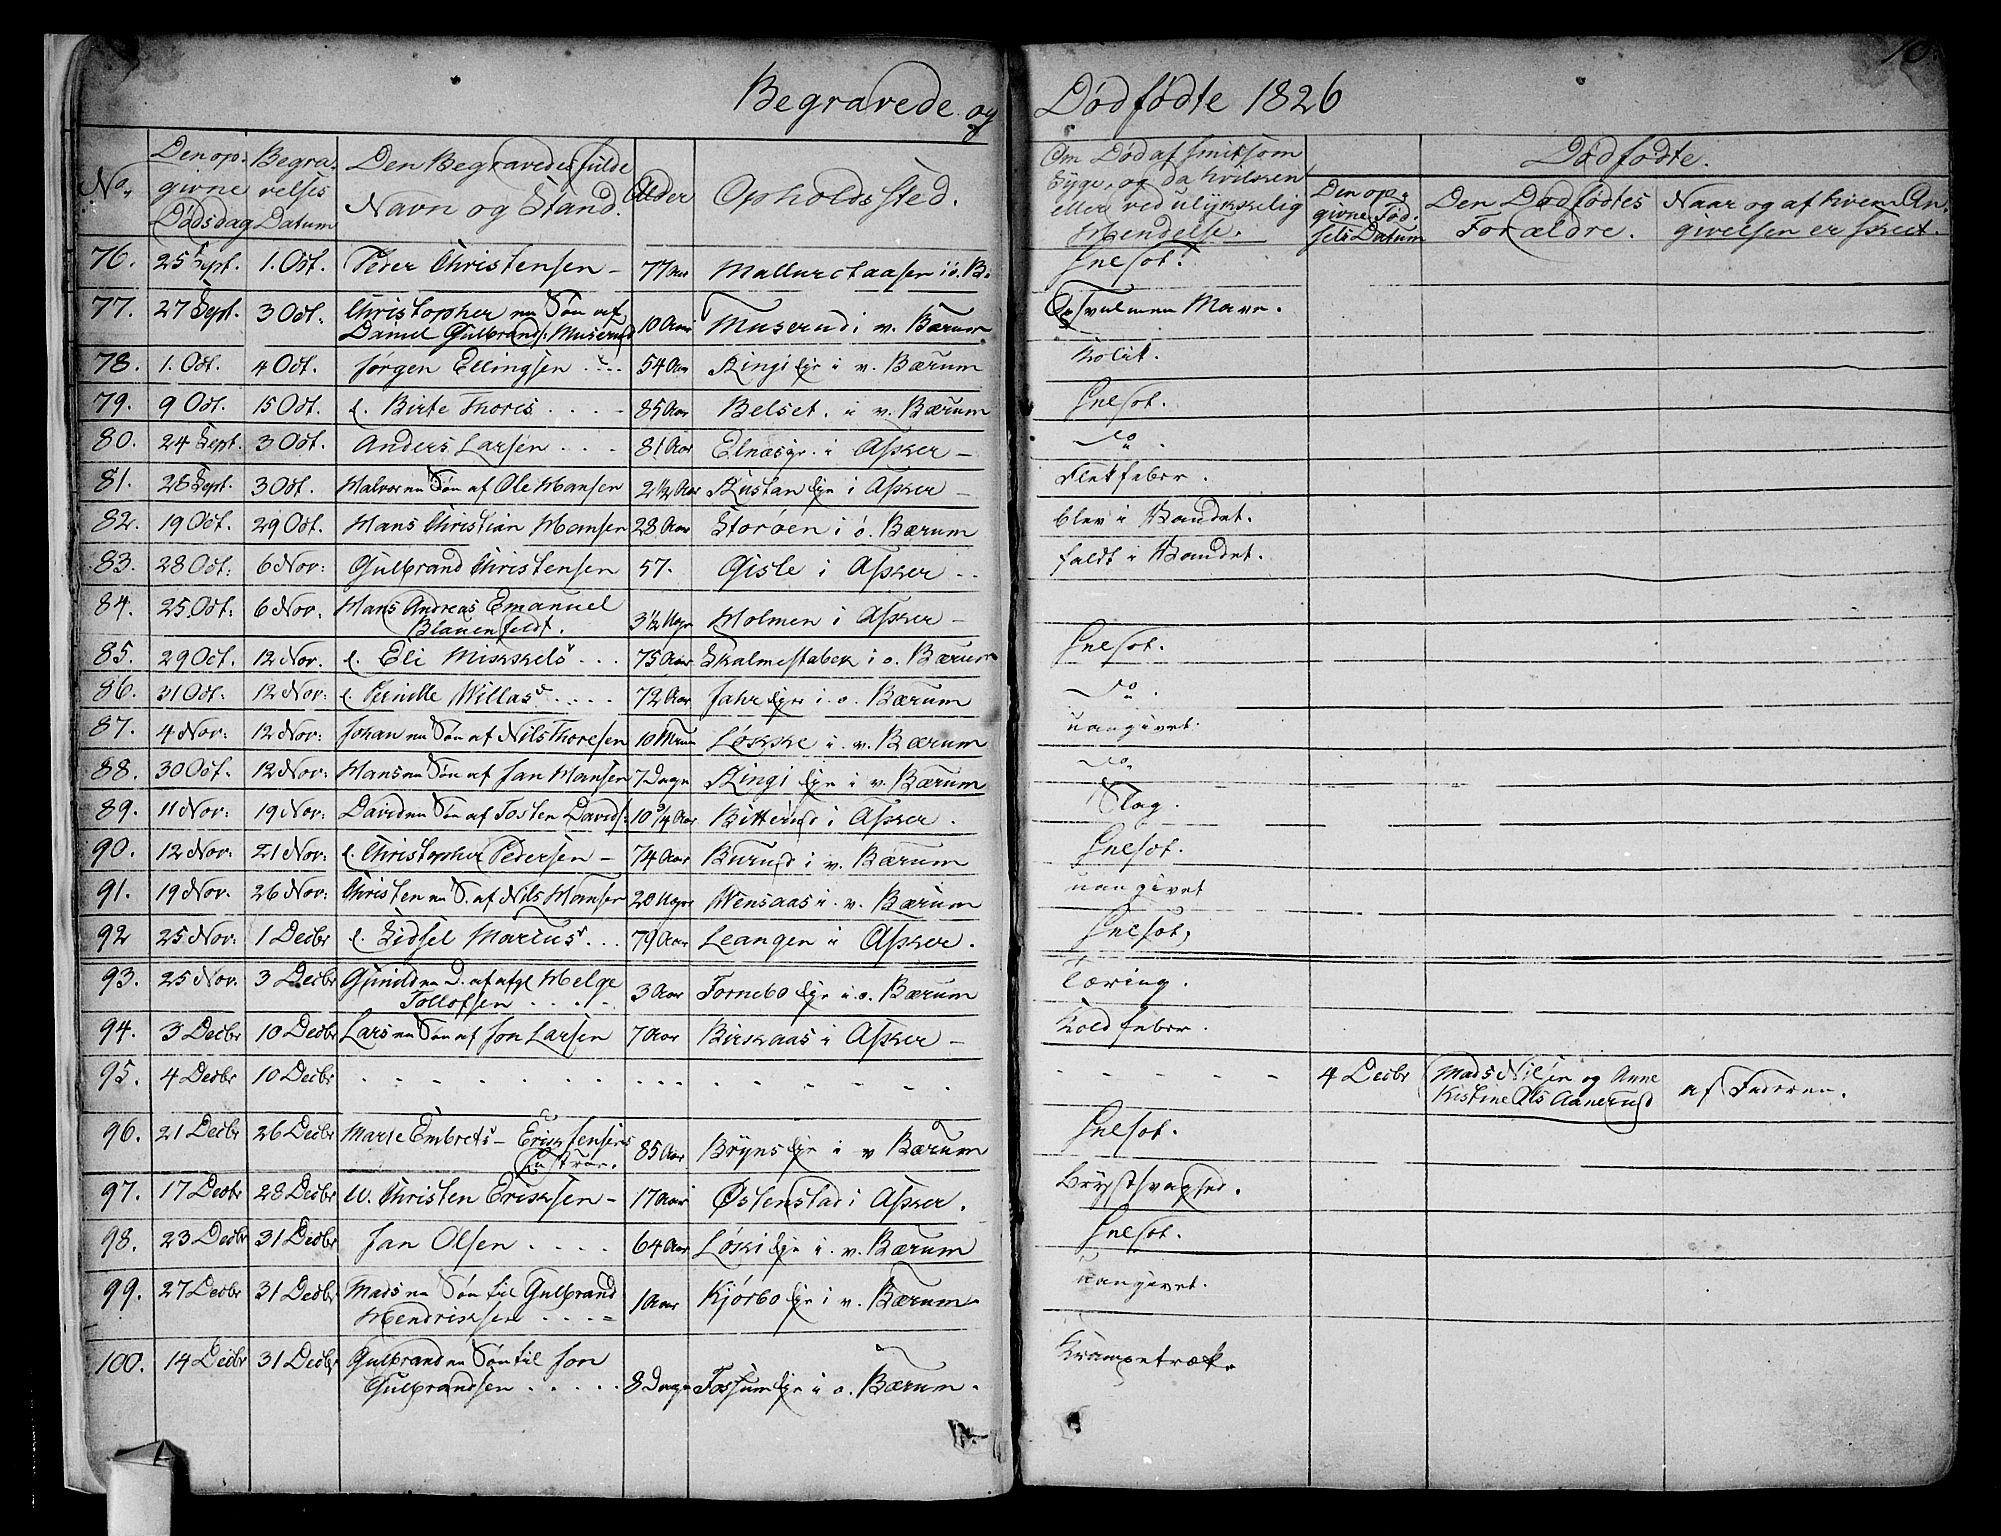 10.
Begravede og Dödfödte 1826
No. Den op- givne Dødsdag Begra- velses Datum Den Begravedes fulde Navn og Stand. Alder Opholdssted. Om Död af smitsom Syge, og da hvilken eller ved ulykkelig Hendelse. Dödfödte.
Den op- givne Föd- sels Datum Den Dödfödtes Forældre. Naar og af hvem An- givelsen er skeet.
76. 25 Sept. 1. Oct. Peder Christensen - 77 Aar i ö. B. Ilesot.
77. 27 Sept. 3 Oct. Christopher en Sön af Daniel Gulbrands: Muserud 10 Aar Muserud i v. Bærum Opsvulmen Mave.
78. 1. Oct. 4 Oct. Jørgen Ellingsen 54 Aar Ringi Eje i v. Bærum Kolik.
79. 9 Oct. 15 Oct. e. Birte Thores 85 Aar Belset. i v. Bærum Ilesot.
80. 24 Sept. 3 Oct. Anders Larsen 81 Aar Elnæsgr. i Asker - do.
81. 28 Sept. 3 Oct. Halvor en Sön af Ole Hansen 2 1/2 Aar Rustan Eje i Asker - Flekfeber.
82. 19 Oct. 29 Oct. Hans Christian Hansen 28 Aar Storöen i ö. Bærum blev i Vandet.
83. 28 Oct: 6 Nov: Gulbrand Christensen 57. Gisle i Asker faldt i Vandet.
84. 25 Oct: 6 Nov. Hans Andreas Emanuel Blauenfeldt. 3 1/2 Uger Holmen i Asker -
85. 29 Oct. 12 Nov. e. Eli Mikkels 75 Aar Skalmestabek i o. Bærum Ilesot.
86. 31 Oct: 12 Nov: e. Pernille Willas 72 Aar Jahr Eje i. o. Bærum do.
87. 4 Nov: 12 Nov: Johan en Sön af Nils Thoresen 10 Løkke i. v. Bærum uangivet.
88. 30 Oct. 12 Nov: Hans en Sön af Jan Hansen 7 Dage Ringi Eje i v. Bærum do.
89. 11 Nov: 19 Nov: David en Sön af Tosten Davids: 10 3/4 Aar Bitterud i Asker. Slag.
90. 12 Nov: 21 Nov: e. Christopher Pedersen - 74 Aar Burud i v. Bærum Ilesot.
91. 19 Nov. 26 Nov: Christen en S. af Nils Hansen 20 Uger Wensaas i. v. Bærum uangivet
92 25 Nov: 1 Decbr e. Sidsel Marius 79 Aar Leangen i Asker. Ilesot,
93. 25 Nov. 3 Decbr Gunild en D. af afg. Helge Tollofsen 3 Aar Fornebo Eje i. o. Bærum Tæring.
94. 3 Decbr 10 Decbr Lars en Sön af Jon Larsen 7 Aar Birkaas i Asker - Koldfeber.
95. 4 Decbr 10 Decbr 4 Decbr Mads Nilsen og Anne Kistine Ols Aanerud af Faderen.
96. 21 Decbr 26 Decbr Marte Embrets - Erik Jensens Enke 85 Aar Bryns Eje i v Bærum Ilesot.
97. 17 Decbr 28 Decbr U. Christen Eriksen - 17 Aar Østenstad i Asker. Brystsvaghed.
98. 23 Decbr 31 Decbr Jan Olsen 64 Aar Løkki Eje i. v. Bærum Ilesot.
99. 27 Decbr 31 Decbr Mads en Sön til Gulbrand Hendriksen 1 Aar Kjørbo Eje i v. Bærum. uangivet.
100. 14 Decbr 31 Decbr Gulbrand en Sön til Jon Gulbrandsen 8 Dage Fossum Eje i o. Bærum. Krampetræk.